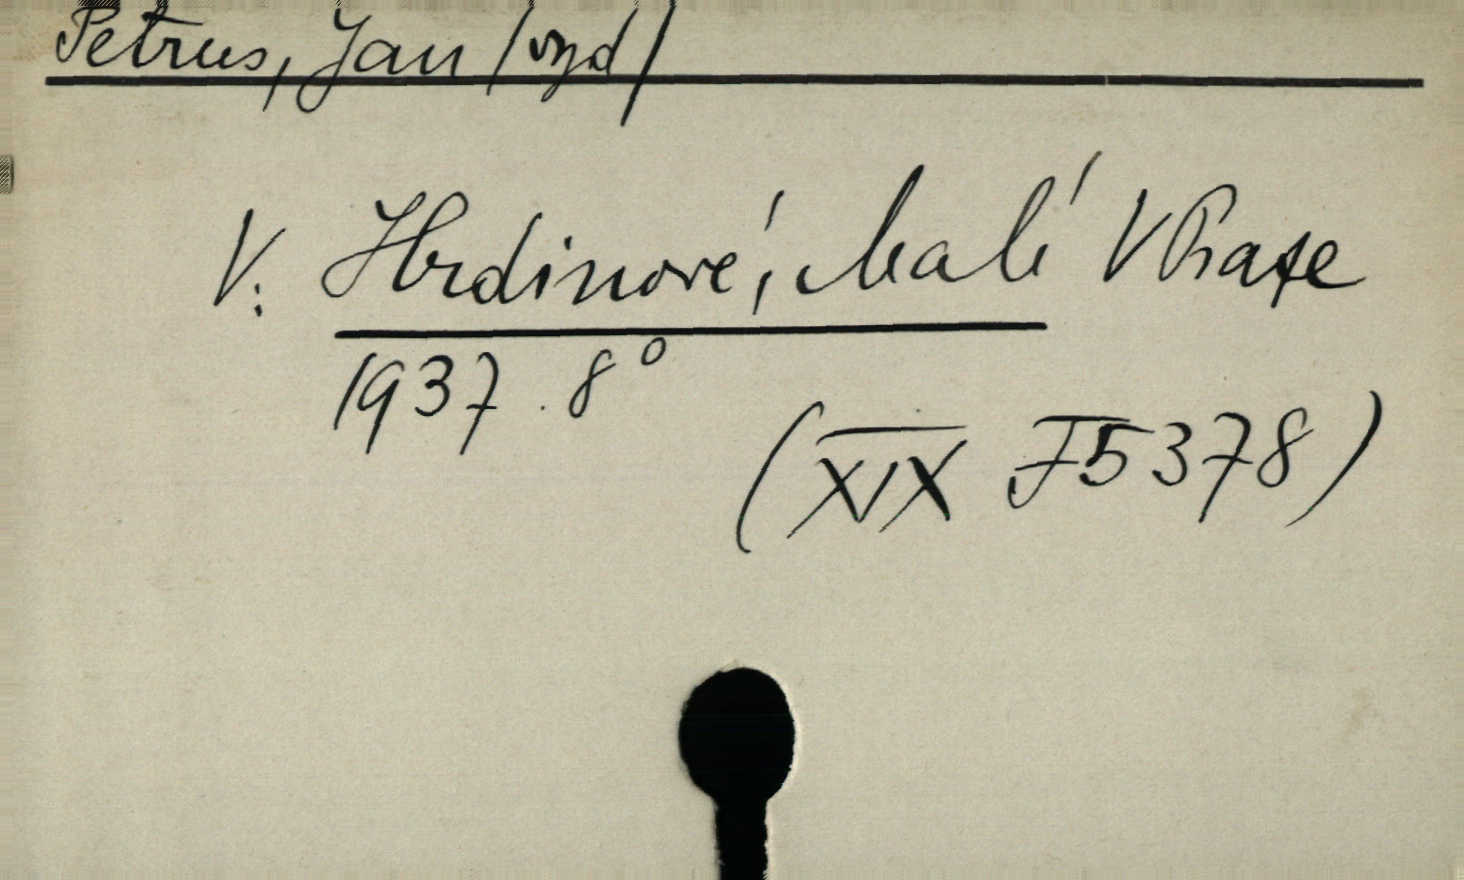 Petrus, Jan /vyd/
V. Hrdinové, Malí V Praze
1937. 8°
(XIX F5378)